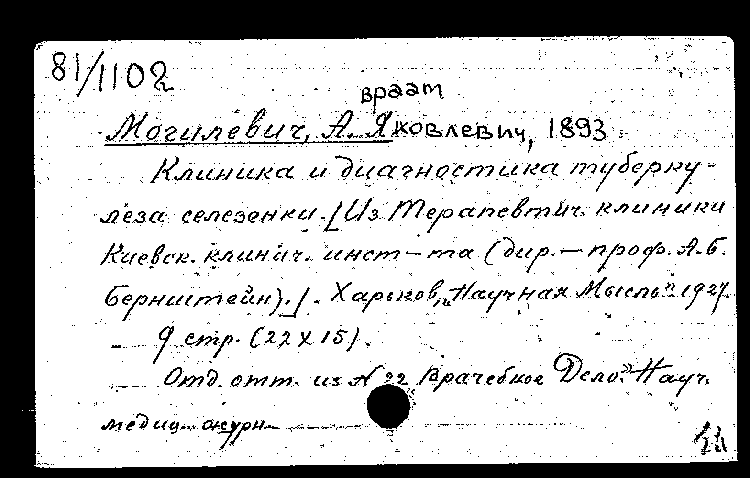 81/1102
враат
Могилевич, А. Яковлевич, 1893
Клиника и диагностика туберку-
леза селезенки. [Из Терапевтич. клиники
Киевск. клинич. инст-та (дир. — проф. А. Б.
Бернштейн).]. Харьков, "Научная Мысль" 1927.
— 9 стр. (22 x 15).
— Отд. отт. из N 22 "Врачебное Дело." Науч.
медиц. журн.